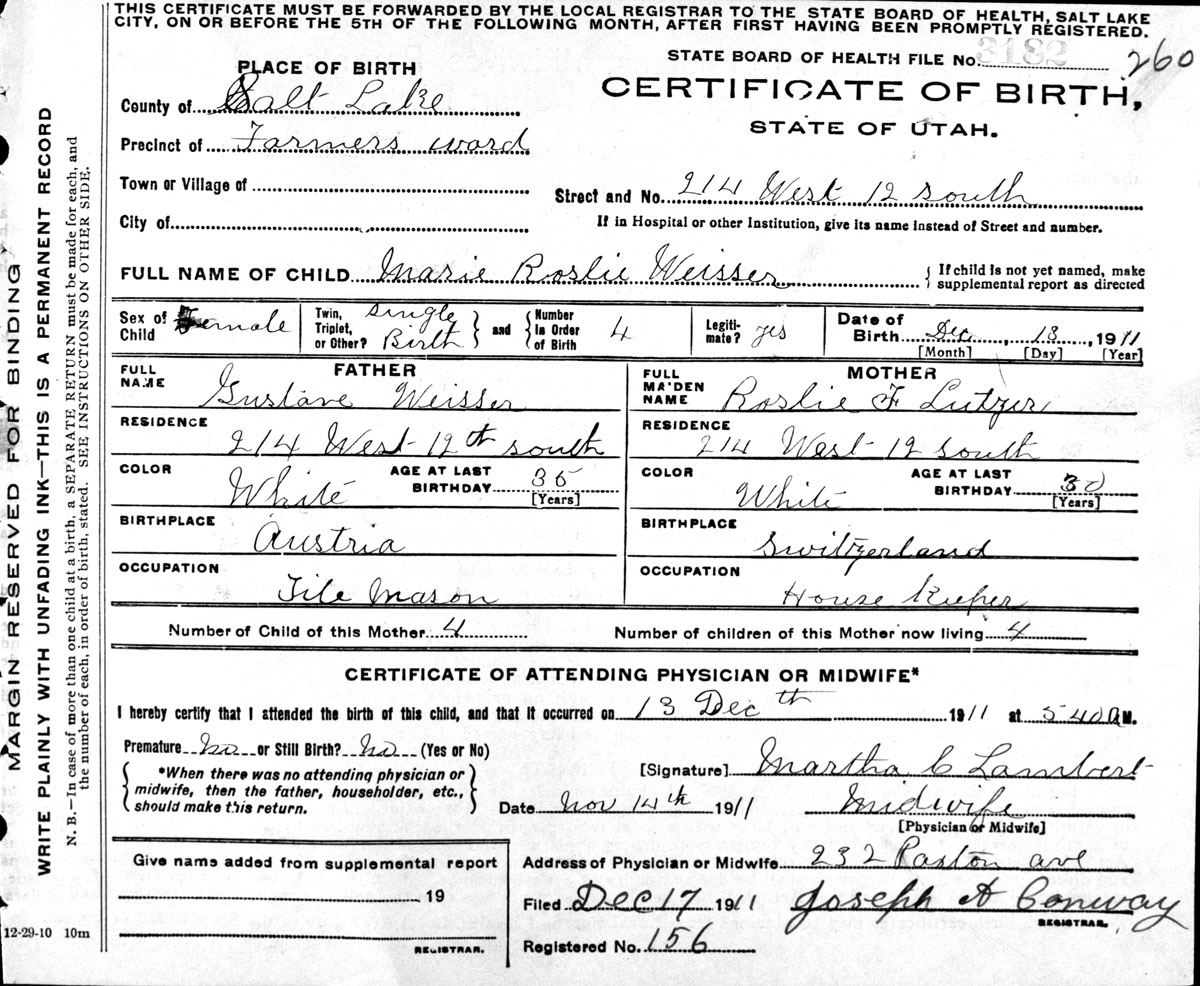 THIS CERTIFICATE MUST BE FORWARDED BY THE LOCAL REGISTRAR TO THE STATE BOARD OF HEALTH, SALT LAKE
CITY, ON OR BEFORE THE 5TH OF THE FOLLOWING MONTH, AFTER FIRST HAVING BEEN PROMPTLY REGISTERED.
STATE BOARD OF HEALTH FILE No. 3182 260
PLACE OF BIRTH
CERTIFICATE OF BIRTH,
STATE OF UTAH.
County of Salt Lake
Precinct of Farmers ward
Town or Village of
Street and No. 214 West 12 South
City of
If in Hospital or other Institution, give its name instead of Street and number.
FULL NAME OF CHILD Marie Roslie Weisser
If child is not yet named, make
supplemental report as directed
Sex of Child Female
Twin, Triplet, or Other? Single Birth
and Number in Order of Birth 4
Legiti-mate? yes
Date of Birth Dec, 13, 1911
[Month] [Day] [Year]
FATHER
FULL NAME Gustave Weisser
RESIDENCE 214 West 12th South
COLOR White AGE AT LAST BIRTHDAY 35 [Years]
BIRTHPLACE Austria
OCCUPATION Tile Mason
MOTHER
FULL MAIDEN NAME Roslie F Lutzer
RESIDENCE 214 West 12 South
COLOR White AGE AT LAST BIRTHDAY 30 [Years]
BIRTHPLACE Switzerland
OCCUPATION House Kieper
Number of Child of this Mother 4 Number of children of this Mother now living 4
CERTIFICATE OF ATTENDING PHYSICIAN OR MIDWIFE*
I hereby certify that I attended the birth of this child, and that it occurred on 13 Dec th 1911 at 540 A M.
Premature No or Still Birth? No (Yes or No)
*When there was no attending physician or
midwife, then the father, householder, etc.,
should make this return.
[Signature] Martha C Lambert
Date Nov 14th 1911 Midwife
[Physician or Midwife]
Give name added from supplemental report
19
REGISTRAR.
Address of Physician or Midwife 232 Paxton ave
Filed Dec 17 1911 Joseph A Conway
REGISTRAR.
Registered No. 156
12-29-10 10m
MARGIN RESERVED FOR BINDING
WRITE PLAINLY WITH UNFADING INK—THIS IS A PERMANENT RECORD
N. B.—In case of more than one child at a birth, a SEPARATE RETURN must be made for each, and
the number of each, in order of birth, stated. SEE INSTRUCTIONS ON OTHER SIDE.